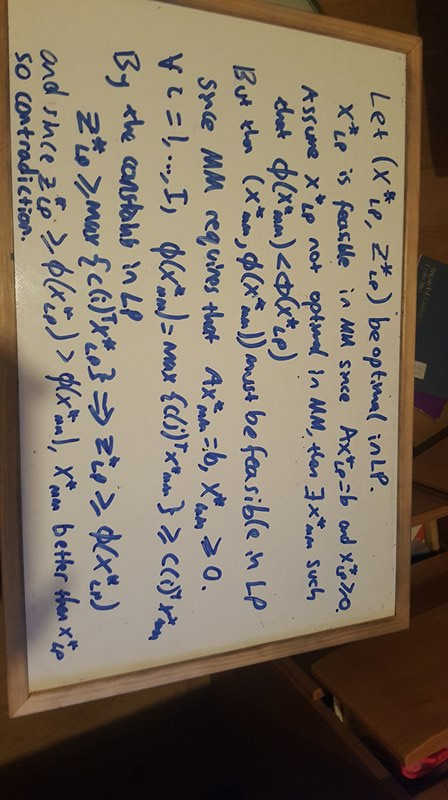 Let (X*LP, Z*LP) be optimal in LP.
X*LP is feasible in MM since AX*LP=b and X*LP≥0.
Assume X*LP not optimal in MM, then ∃ X*MM such
that ϕ(X*MM) < ϕ(X*LP)
But then (X*MM, ϕ(X*MM)) must be feasible in LP
Since MM requires that AX*MM=b, X*MM ≥ 0.
∀ i=1,...,I, ϕ(X*MM) = max {C(i)ᵀX*MM} ≥ C(i)ᵀX*MM
By the constaint in LP
Z*LP ≥ max {C(i)ᵀX*LP} ⇒ Z*LP ≥ ϕ(X*LP)
and since Z*LP ≥ ϕ(X*LP) > ϕ(X*MM), X*MM better than X*LP
so contradiction.